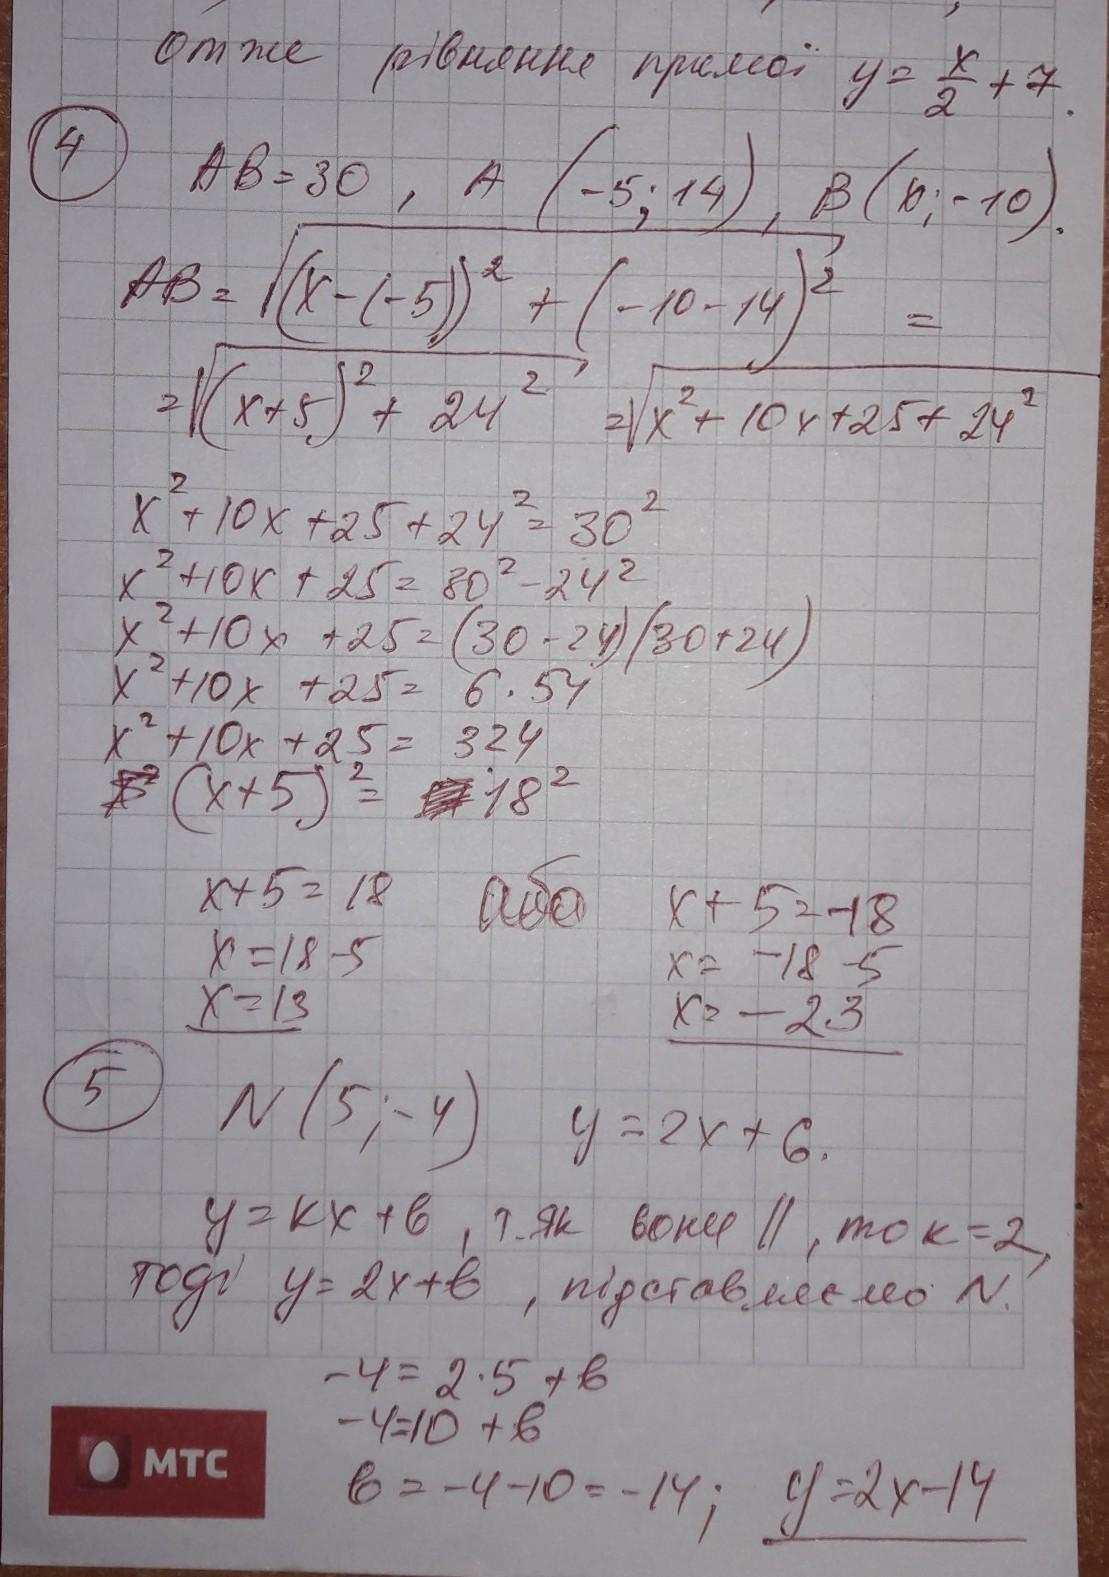 Отже рівняння прямої y = x/2 + 7.
4
AB = 30, A (-5; 14), B (x; -10).
AB = √((x-(-5))² + (-10-14)²) =
= √((x+5)² + 24²) = √(x² + 10x + 25 + 24²)
x² + 10x + 25 + 24² = 30²
x² + 10x + 25 = 30² - 24²
x² + 10x + 25 = (30 - 24)(30 + 24)
x² + 10x + 25 = 6 · 54
x² + 10x + 25 = 324
(x+5)² = 18²
x + 5 = 18 або x + 5 = -18
x = 18 - 5 x = -18 - 5
x = 13 x = -23
5
N (5; -4) y = 2x + 6.
y = kx + b, т. як вони ||, то k = 2,
тоді y = 2x + b, підставляємо N.
-4 = 2·5 + b
-4 = 10 + b
b = -4 - 10 = -14; y = 2x - 14
МТС